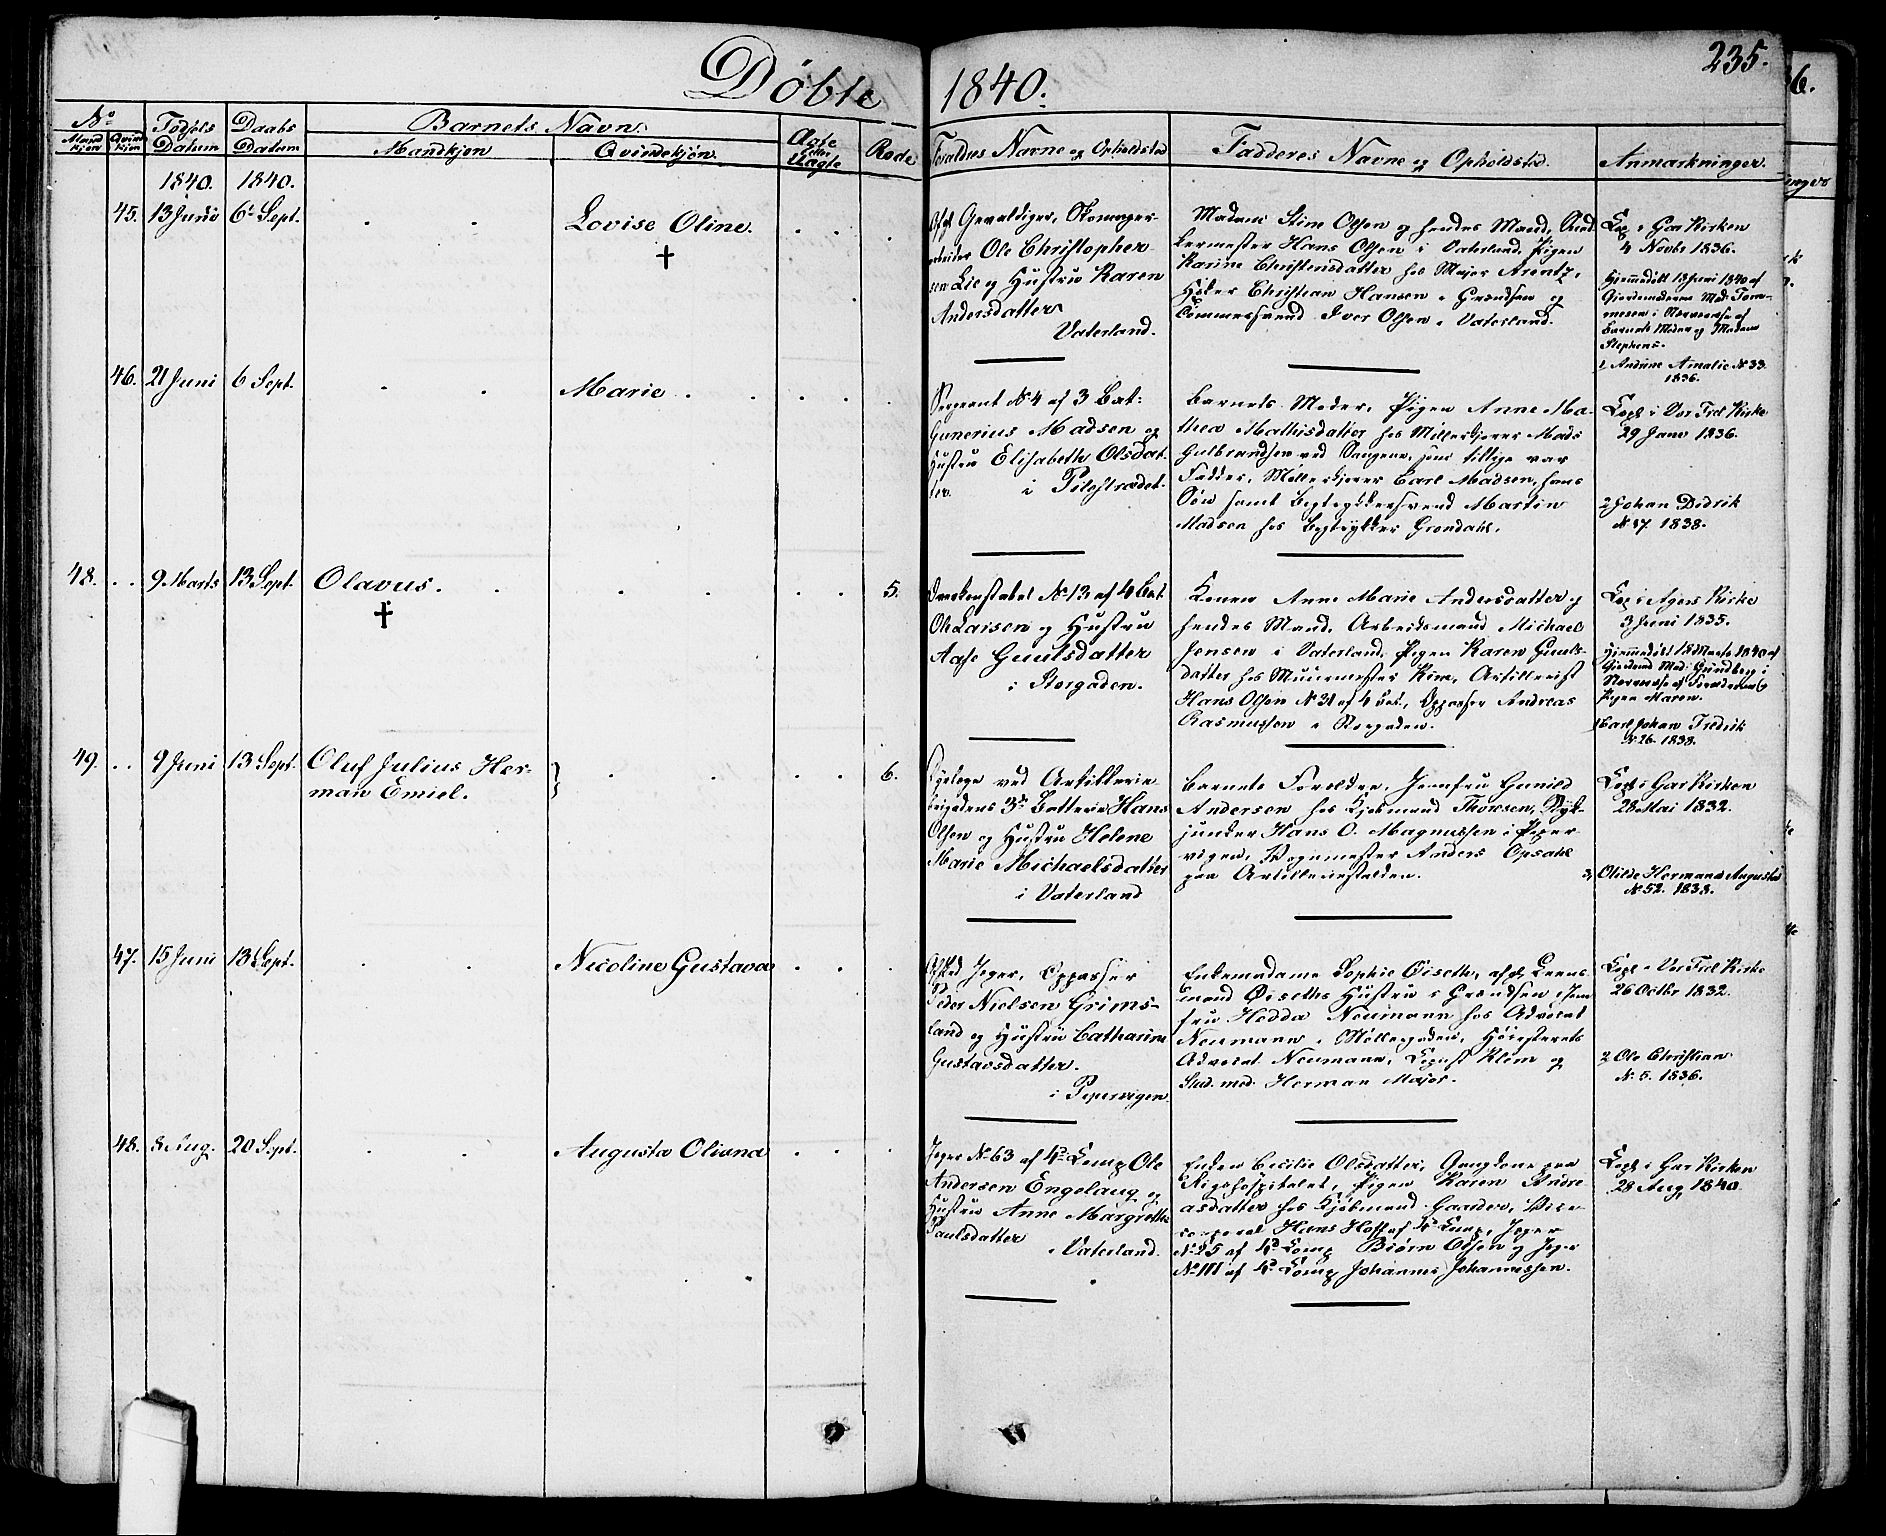 Døbte 1840.
235.
No
Mand kjøn
Qvinde kjøn
Fødsels Datum
Daabs Datum
Barnets Navn.
Mandkjøn
Qvindekjøn.
Ægte eller Uægte
Rode
Forældres Navne og Opholdsted
Fadderes Navne og Opholdsted.
Anmærkninger.
1840. 1840.
45. 13 Juni 6te Sept. Lovise Oline.
†
Afsk Gevaldiger,
Ole Christopher
sen Lie og Hustru Karen
Andersdatter
Vaterland.
Madam Stine Olsen og hendes Mand,
Hans Olsen i Vaterland, Pigen
Karine Christensdatter hos Major Arentz,
Christian Hansen i Grændsen og
Tømmersvend Iver Olsen i Vaterland.
Cop. i Gar Kirken
4 Novbr 1836.
Hjemmedøbt 13 Juni 1840 af
Gjordemoderen Md: Tom-
mesen i Nærværelse af
Barnets Moder og Madam
Stephens.
1, Andrine Amalie No 33.
1836.
46. 21 Juni 6 Sept. Marie
Sergeant No 4 af 3 Bat:
Gunerius Madsen og
Hustru Elisabeth Olsdat-
ter. i Pilestrædet.
Barnets Moder, Pigen Anne Ma-
thea Mathisdatter hos Møllerkjører Mads
Gulbrandsen ved Saugene, som tillige var
Fadder, Møllerkjører Carl Madsen, hans
Søn samt Bogtrykkersvend Martin
Madsen hos Bogtrykker Grøndahl.
Cop. i Vor Frel Kirke
29 Janr 1836.
2 Johan Didrik
No 17. 1838.
48. 9 Marts 13 Sept. Olavus. 5.
†
No 13 af 4 Bat.
Ole Larsen og Hustru
Aase Guulsdatter
i Storgaden.
Konen Anne Marie Andersdatter og
hendes Mand, Arbeidsmand Michael
Jensen i Vaterland, Pigen Karen Guuls-
datter hos Muurmester Kim, Artillerist
Hans Olsen No 31 af 4 Bat., Oppasser Andreas
Rasmussen i Storgaden.
Cop. i Agers Kirke
3 Juni 1835.
Hjemmedøbt 18 Marts 1840 af
Gjordmd Md: Gundberg i
Nærværelse af Forældrene og
Pigen Maren.
1 Carl Johan Fredrik
No 26. 1838.
49. 9 Juni 13 Sept. Oluf Julius Her-
man Emiel. 6.
ved Artillerie
brigadens 3de Batterie Hans
Olsen og Hustru Helene
Marie Michaelsdatter
i Vaterland
Barnets Forældre, Jomfru Gunild
Andersen hos Kjøbmand Thoresen, Styk-
junker Hans O. Magnussen i Piper-
vigen, Vognmester Anders Opsahl
paa Artilleriestalden.
Cop. i Gar Kirken
28 Mai 1832.
3, Otilde Hermana Augusta
No 52. 1838.
47. 15 Juni 13 Sept. Nicoline Gustava
Afsked Jeger, Oppasser
Peder Nielsen Grims-
land og Hustru Catharine
Gustavsdatter.
i Pipervigen.
Enkemadame Sophie Øiseth, afsk. Leens-
mand Øiseths Hustru i Grændsen, Jom
fru Hedda Neumann hos Advocat
Neumann i Møllergaden, Høiesterets
Advocat Neumann, Klem og
Stud. med. Herman Major.
Cop. i Vor Frel Kirke
26 Octbr 1832.
2 Ole Christian
No. 5. 1836.
48. 8 Aug. 20 Sept. Augusta Oliana
Jeger No 63 af Comp. Ole
Andersen Engelaug og
Hustru Anne Margrethe
Paulsdatter
i Vaterland.
Enken Cecilie Olsdatter, Gangkone paa
Rigshospitalet, Pigen Karen Andre
asdatter hos Kjøbmand Gaarder, Vice-
corporal Hans Hoff af Comp, Jeger
No 25 af Comp Biørn Olsen og Jeger
No 111 af Comp Johannes Johannessen.
Cop. i Gar Kirken
28 Aug 1840.